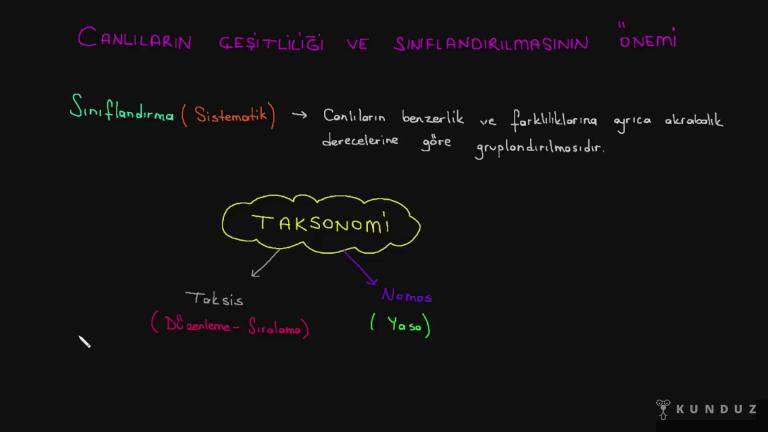 CANLILARIN ÇEŞİTLİLİĞİ VE SINIFLANDIRILMASININ ÖNEMİ
Sınıflandırma (Sistematik) → Canlıların benzerlik ve farklılıklarına ayrıca akrabalık
derecelerine göre gruplandırılmasıdır.
TAKSONOMİ
Taksis Nomos
(Düzenleme - Sıralama) (Yasa)
KUNDUZ